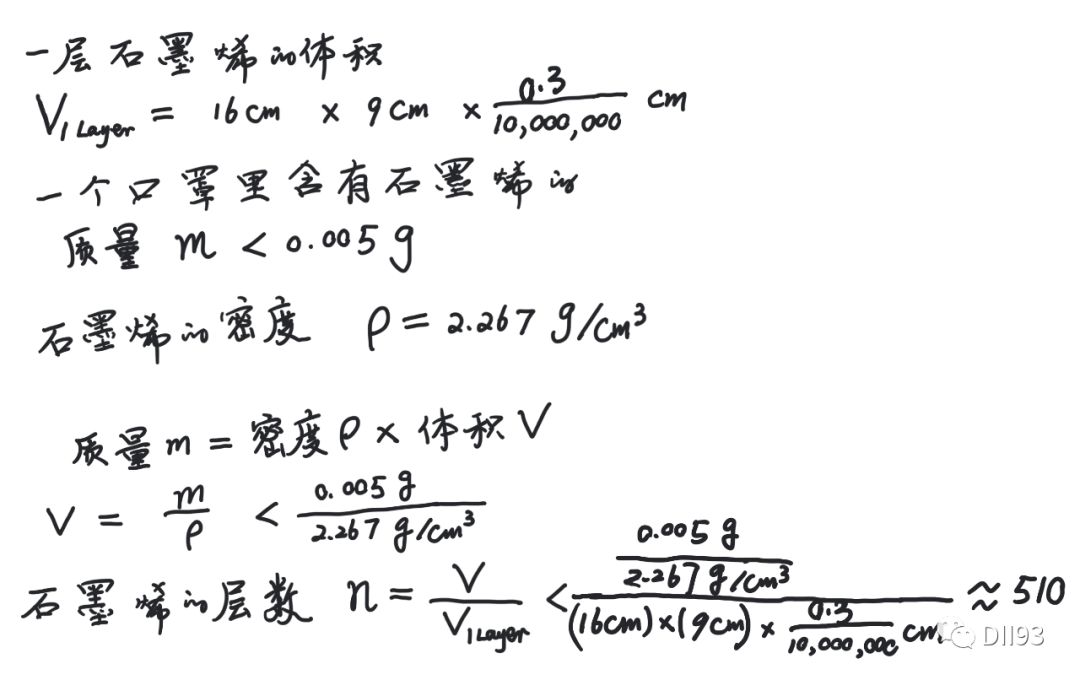 一层石墨烯的体积
V1 Layer = 16cm × 9cm × 0.3/10,000,000 cm
一个口罩里含有石墨烯的
质量 m < 0.005 g
石墨烯的密度 ρ = 2.267 g/cm³
质量 m = 密度 ρ × 体积 V
V = m/ρ < 0.005 g / 2.267 g/cm³
石墨烯的层数 n = V / V1 Layer < (0.005 g / 2.267 g/cm³) / ((16cm)×(9cm)×0.3/10,000,000 cm) ≈ 510
DII93